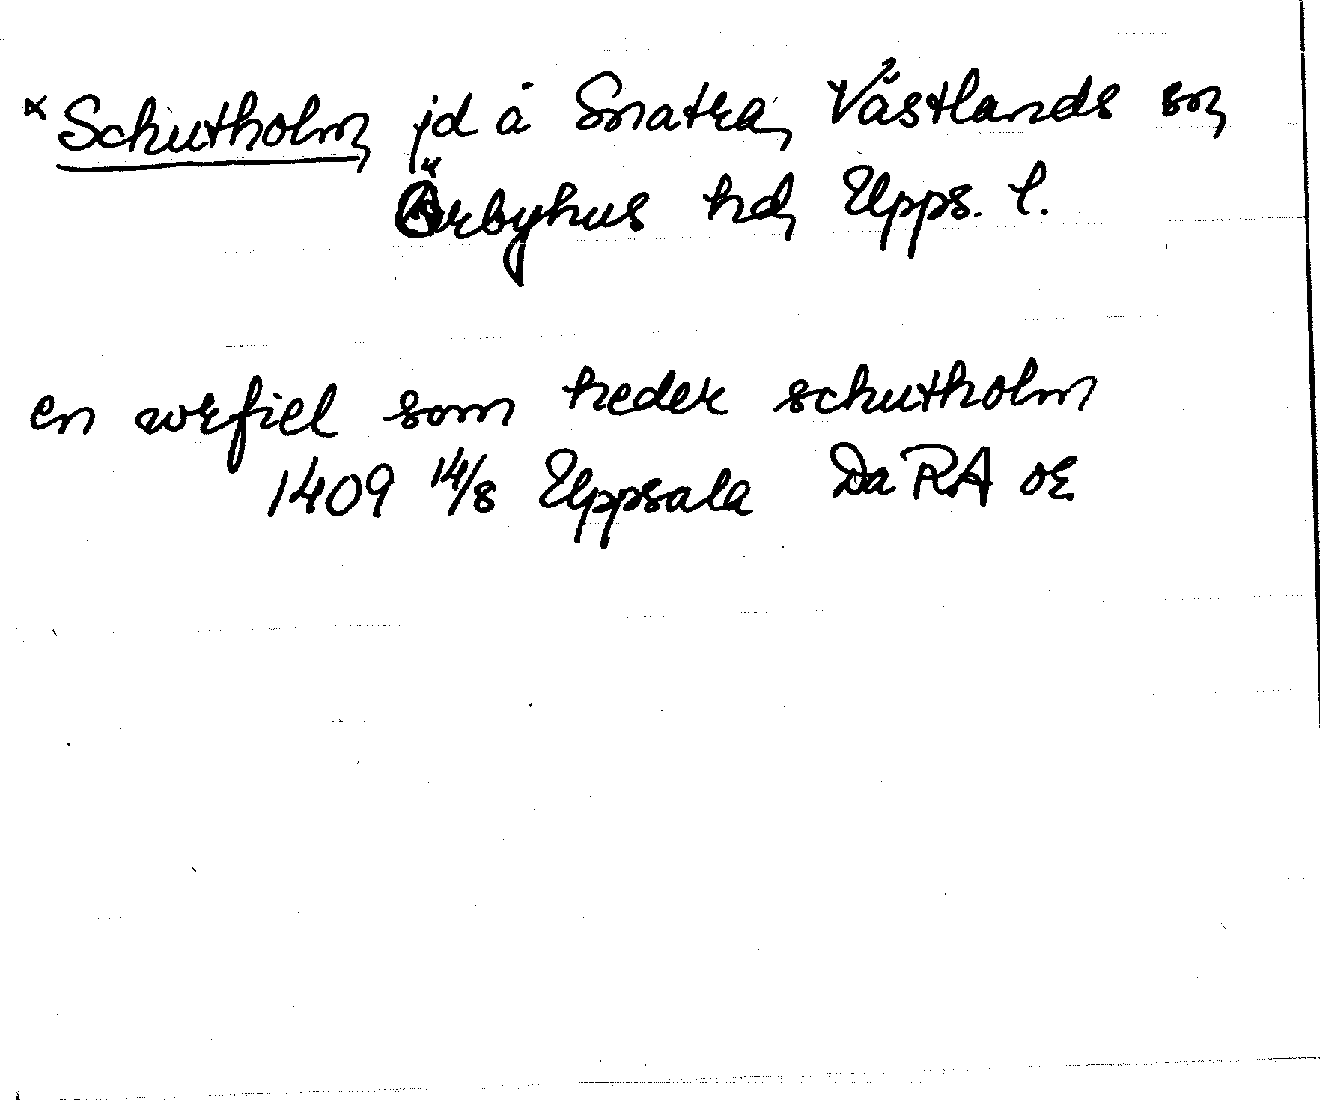 * Schutholm, jd å Snatra, Västlands sn,
Örbyhus hd, Upps. l.
en wrfiel som heder schutholm
1409 14/8 Uppsala Da RA or